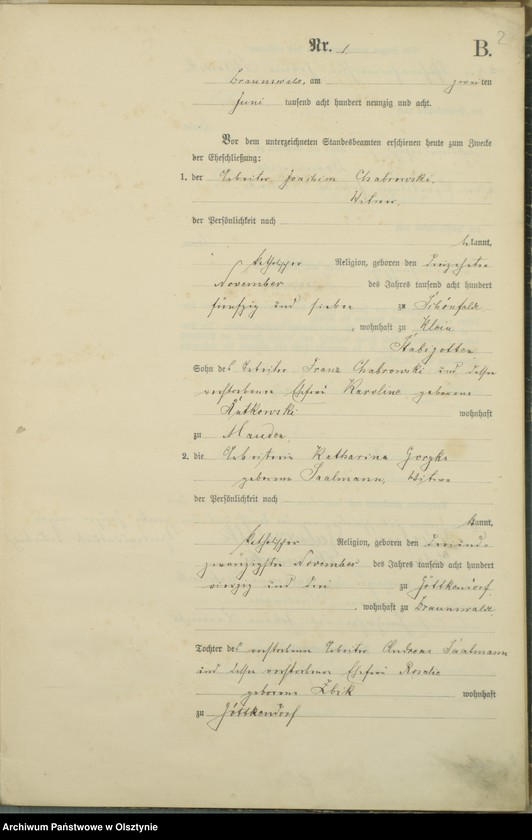 Nr. 1
B. 2
Braunswalde, am zweiten
Juni tausend acht hundert neunzig und acht.
Vor dem unterzeichneten Standesbeamten erschienen heute zum Zwecke
der Eheschließung:
1. der Arbeiter Joachim Chabrowski,
Witwer,
der Persönlichkeit nach
bekannt,
katholischer Religion, geboren den dreizehnten
November des Jahres tausend acht hundert
fünfzig und sieben zu Schönfelde
, wohnhaft zu Klein
Stabigotten
Sohn des Arbeiter Franz Chabrowski und dessen
verstorbenen Ehefrau Karoline geborene
Rutkowski wohnhaft
zu Mauden.
2. die Arbeiterin Katharina Gorzka
geborene Saalmann, Witwe
der Persönlichkeit nach
kannt,
katholischer Religion, geboren den dreiund-
zwanzigsten November des Jahres tausend acht hundert
vierzig und drei zu Göttkendorf
, wohnhaft zu Braunswalde
Tochter des verstorbenen Arbeiter Andreas Saalmann
und dessen verstorbenen Ehefrau Rosalie
geborene Zbik wohnhaft
zu Göttkendorf
Archiwum Państwowe w Olsztynie